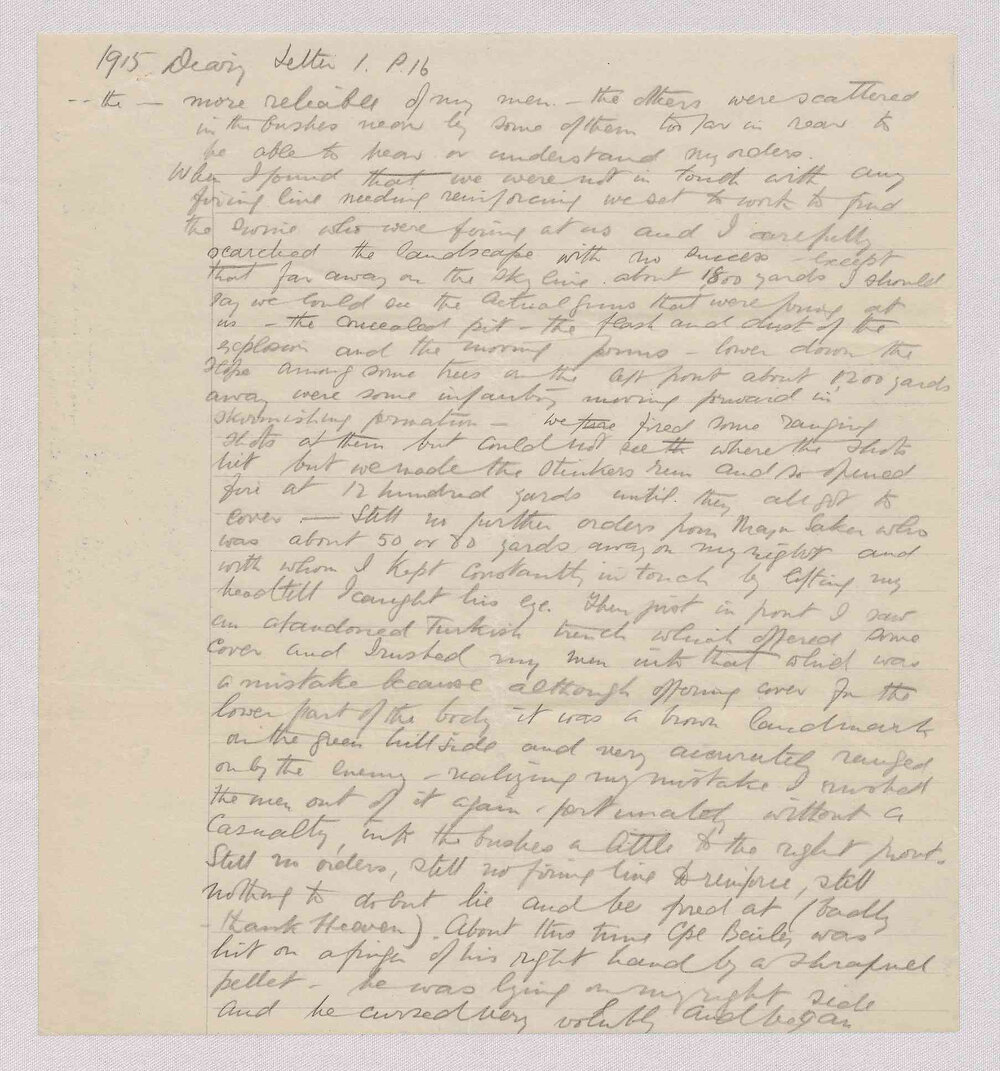 1915 Diary Letter 1. P.16
-- the — more reliable of my men — the others were scattered
in the bushes near by some of them too far in rear to
be able to hear or understand my orders.
When I found that we were not in touch with any
firing line needing reinforcing we set to work to find
the swine who were firing at us and I carefully
searched the landscape with no success except
that far away on the sky line about 1800 yards I should
say we could see the actual guns that were firing at
us — the concealed pit — the flash and dust of the
explosion and the moving forms — lower down the
slope among some trees on the left front about 1200 yards
away were some infantry moving forward in
skirmishing formation — we fired some ranging
shots at them but could not see where the shots
hit but we made the stinkers run and so opened
fire at 12 hundred yards until they all got to
cover — Still no further orders from Major Saker who
was about 50 or 80 yards away on my right and
with whom I kept constantly in touch by lifting my
head till I caught his eye. Then just in front I saw
an abandoned Turkish trench which offered some
cover and I rushed my men into that which was
a mistake because although offering cover for the
lower part of the body it was a brown landmark
on the green hillside and very accurately ranged
on by the enemy — realizing my mistake I rushed
the men out of it again, fortunately without a
casualty, into the bushes a little to the right front.
Still no orders, still no firing line to reinforce, still
nothing to do but lie and be fired at (badly
thank Heaven). About this time Cpl Bailey was
hit on a finger of his right hand by a shrapnel
pellet — he was lying on my right side
and he cursed very volubly and began